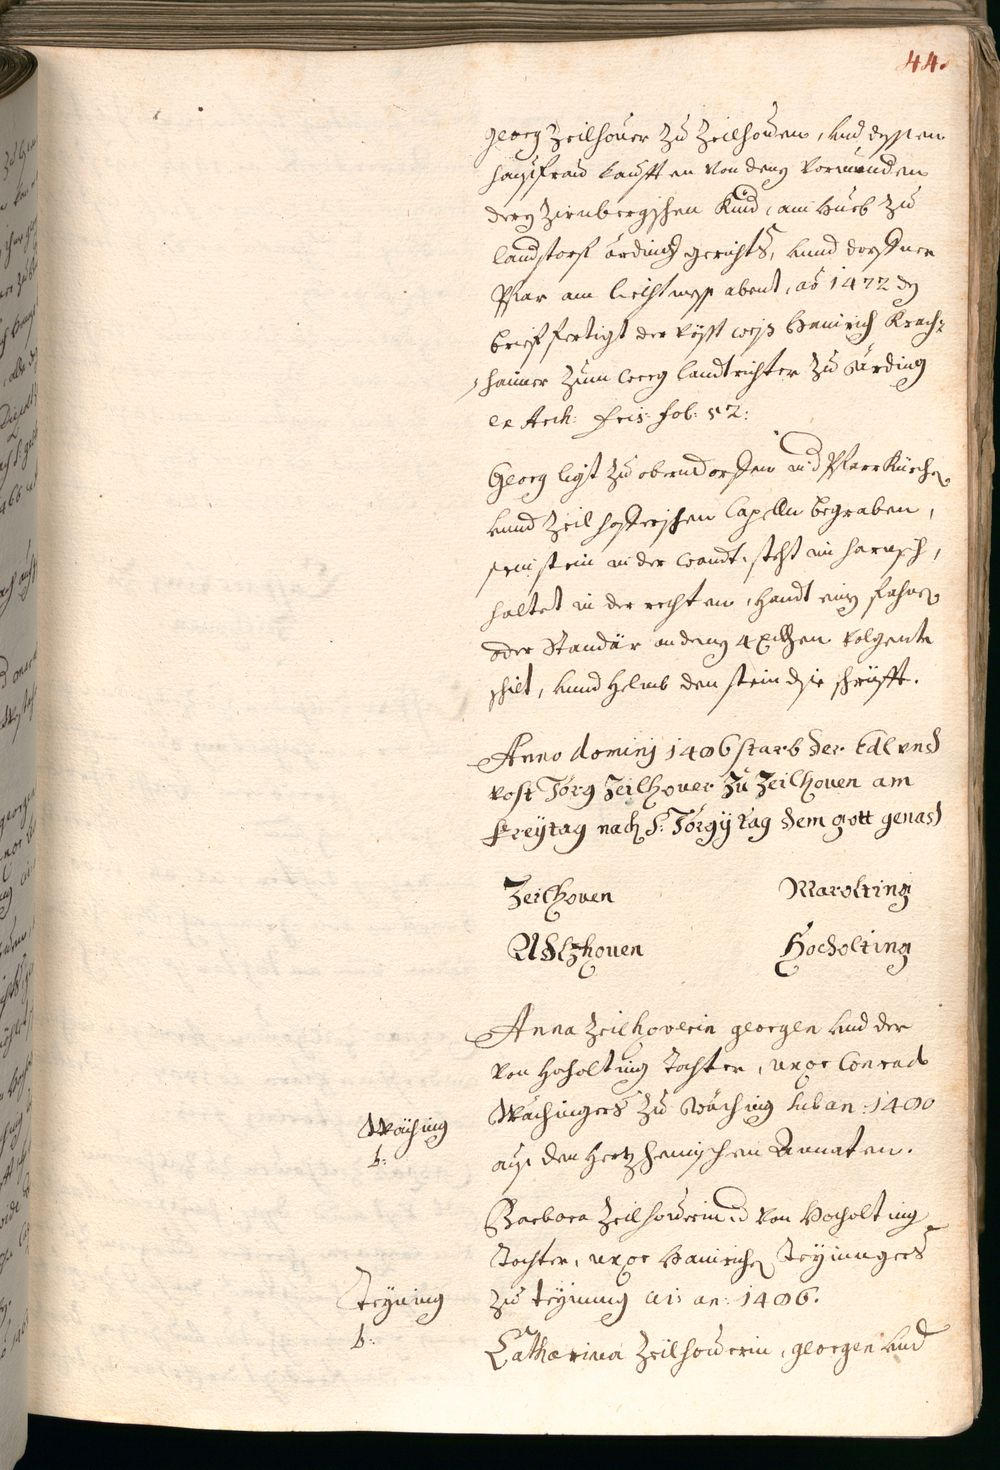 44.
Georg Zeilhouer zu Zeilhouen, vnd dessen
hausfrau kaufften von denen vormunden
deren Zirnbergschen Kind, am Hueb zu
landtstorf ärding gerichts, vnnd dorffner
Pfar am liechtmess abent, ao 1472 den
brieff fertigt der vösst weis Hainrich Krech=
haimer zum landtrichter zu Ärding
ex Arch: Fris: fol: 52:
Georg ligt zu oberndorffen in d Pfarr Kirchen
vnnd Zeilhofferischen Capelln begraben,
sein stein in der wandt, steht im harnisch,
haltet in der rechten, handt ein fahnen
oder Standär an den 4 Eckhen volgente
schilt, vnnd Helmb den stein die schrifft.
Anno dominj 1486 starb der Edl vnd
vost Jörg Zeilhouer zu Zeilhouen am
Freytag nach S: Jörgÿ tag dem gott genad
Zeilhouen Marolting
Adlzhouen Hocholting
Anna Zeilhoverin georgen vnd der
von Hocholting Tochter, uxor Conrad
Wächingers zu Wäching sub an: 1480
aus den Hertzheimischen Annaten.
Wäching
b:
Barbara Zeilhouerin d von Hocholting
Tochter, uxor Hainrichen Teyningers
zu teyning ai: an: 1486.
Teyning
b:
Catharina Zeilhouerin, georgen vnd